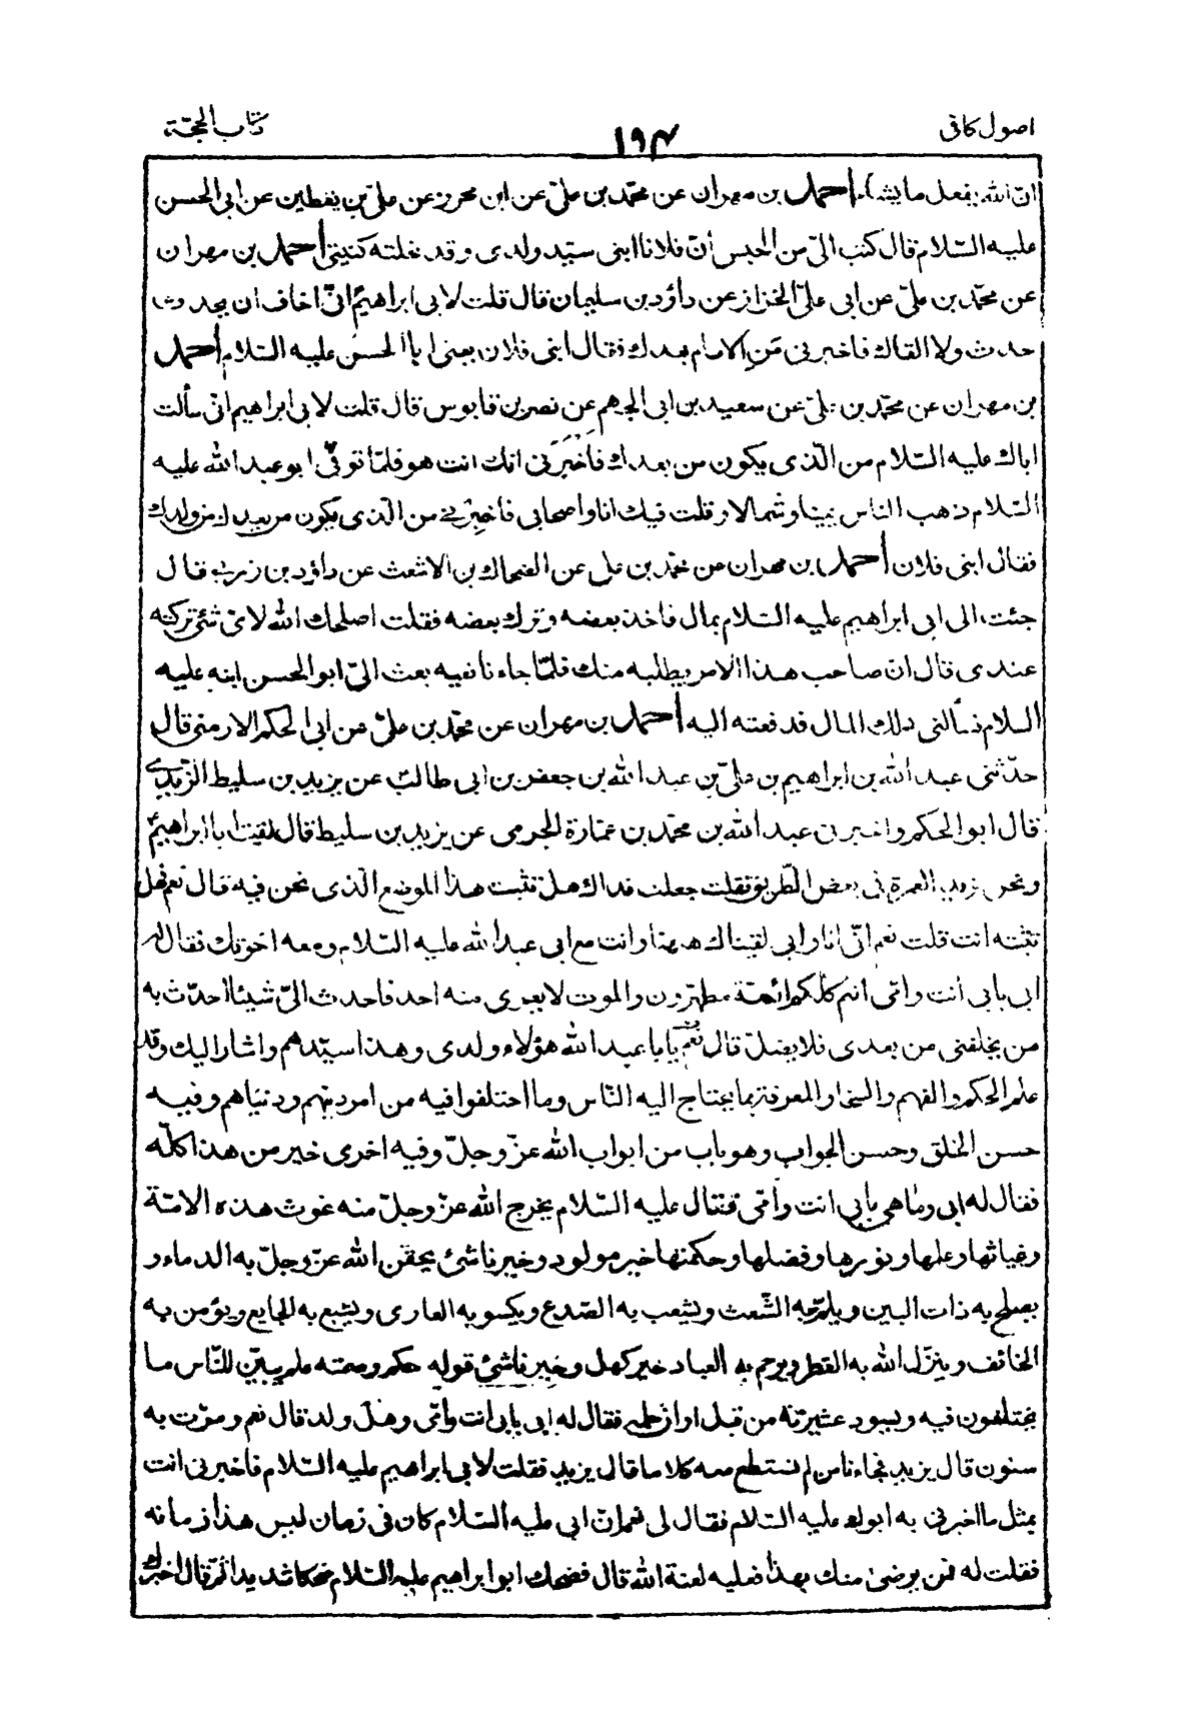 اصول كافى
١٩٣
كتاب الحجّة
انّ الله يفعل ما يشاء احمد بن مهران عن محمّد بن علىّ عن ابن محرز عن علىّ بن يقطين عن ابى الحسن
عليه السّلام قال كتب الىّ من الحبس أنّ فلانا ابنى سيّد ولدى وقد نحلته كنيتى احمد بن مهران
عن محمّد بن علىّ عن ابى علىّ الخزاز عن داؤد بن سليمان قال قلت لابى ابراهيمؑ انّى اخاف ان يحدث
حدث ولا القاك فاخبرنى مَن الامام بعدك فقال ابنى فلان يعنى ابا الحسن عليه السّلام احمد
بن مهران عن محمّد بن علىّ عن سعيد بن ابى الجهم عن نصر بن قابوس قال قلت لابى ابراهيم انّى سألت
اباك عليه السّلام من الّذى يكون من بعدك فأخبَرَنى انك انت هو فلمّا توفّى ابو عبد الله عليه
السّلام ذهب الناس يمينا وشمالا وقلت فيك انا واصحابى فأخبِرنى من الّذى يكون من بعدك من ولدك
فقال ابنى فلان احمد بن مهران عن محمّد بن على عن الضحاك بن الاشعث عن داؤد بن زربى قال
جئت الى ابى ابراهيم عليه السّلام بمال فاخذ بعضه وترك بعضه فقلت اصلحك الله لاىّ شئ تركته
عندى قال انّ صاحب هذا الامر يطلبه منك فلمّا جاءنا نعيه بعث الىّ ابو الحسن ابنه عليه
السلام فسألنى ذلك المال فدفعته اليه احمد بن مهران عن محمّد بن علىّ عن ابى الحكم الارمنى قال
حدّثنى عبد الله بن ابراهيم بن علىّ بن عبد الله بن جعفر بن ابى طالبؑ عن يزيد بن سليط الزّيدى
قال ابو الحكم واخبرنى عبد الله بن محمّد بن عمّارة الجرمى عن يزيد بن سليط قال لقيت ابا ابراهيمؑ
ونحن نريد العمرة فى بعض الطّريق فقلت جعلت فداك هل تثبت هذا الموضع الّذى نحن فيه قال نعم فهل
تثبته انت قلت نعم انّى انا وابى لقيناك هيهنا وانت مع ابى عبد الله عليه السّلام ومعه اخوتك فقال له
ابى بابى أنت وامّى انتم كلّكم ائمّة مطهّرون والموت لا يعرى منه احد فاحدث الىّ شيئا احدّث به
من يخلفنى من بعدى فلا يضلّ قال نعم يا با عبد الله هؤلاء ولدى وهذا سيّدهم واشار اليك وقد
علم الحكم والفهم والسخاء والمعرفة بما يحتاج اليه النّاس وما اختلفوا فيه من امر دينهم ودنياهم وفيه
حسن الخلق وحسن الجواب وهو باب من ابواب الله عزّ وجلّ وفيه اخرى خير من هذا كلّه
فقال له ابى وما هى بأبى انت وأمّى فقال عليه السّلام يخرج الله عزّ وجلّ منه غوث هذه الامّة
وغياثها وعلمها ونورها وفضلها وحكمتها خير مولود وخير ناشئ يحقن الله عزّ وجلّ به الدماء و
يصلح به ذات البين ويلمّ به الشّعث ويشعب به الصّدع ويكسو به العارى ويشبع به الجايع ويؤمن به
الخائف وينزّل الله به القطر ويرحم به العباد خير كهل وخير ناشئ قوله حكم وصمته علم يبيّن للنّاس ما
يختلفون فيه ويسود عشيرته من قبل اوان حلمه فقال له ابى بابى انت وامّى وهل ولد قال نعم ومرّت به
سنون قال يزيد فجاءنا من لم نستطع معه كلاما قال يزيد فقلت لابى ابراهيم عليه السّلام فاخبرنى انت
بمثل ما اخبرنى به ابوك عليه السّلام فقال لى نعم انّ ابى عليه السّلام كان فى زمان ليس هذا زمانه
فقلت له فمن يرضى منك بهذا فعليه لعنة الله قال فضحك ابو ابراهيم عليه السّلام ضحكا شديدا ثم قال اخبرك